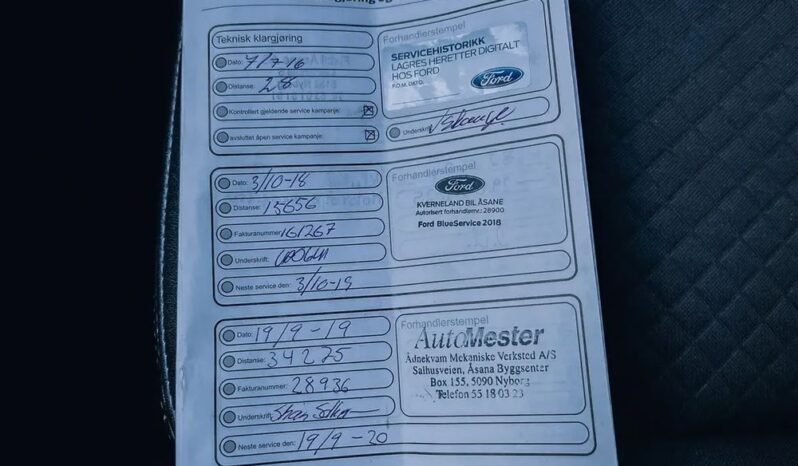 Teknisk klargjøring
Dato: 7/7-16
Distanse: 28
Kontrollert gjeldende service kampanje:
avsluttet åpen service kampanje:
Forhandlerstempel
SERVICEHISTORIKK
LAGRES HERETTER DIGITALT
HOS FORD
F.O.M. DATO.
Ford
Underskrift:
Dato: 3/10-18
Distanse: 15656
Fakturanummer: 161267
Underskrift:
Neste service den: 3/10-19
Forhandlerstempel
Ford
KVERNELAND BIL ÅSANE
Autorisert forhandlernr.: 28900
Ford BlueService 2018
Dato: 19/9-19
Distanse: 34275
Fakturanummer: 28936
Underskrift:
Neste service den: 19/9-20
Forhandlerstempel
AutoMester
Ådnekvam Mekaniske Verksted A/S
Salhusveien, Åsana Byggsenter
Box 155, 5090 Nyborg
Telefon 55 18 03 23